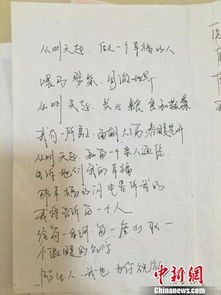 从明天起，做一个幸福的人
喂马 劈柴 周游世界
从明天起，关心粮食和蔬菜
我有一所房子，面朝大海 春暖花开
从明天起，和每一个亲人通信
告诉他们我的幸福
那幸福的闪电告诉我的
我将告诉每一个人
给每一条河，每一座山取一
个温暖的名字
陌生人，我也为你祝福
中新网
www.chinanews.com